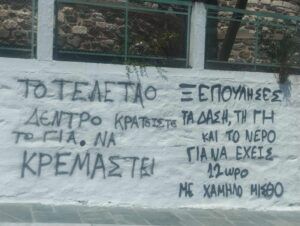 ΤΟ ΤΕΛΕΤΑΟ
ΔΕΝΤΡΟ ΚΡΑΤΕΙΣΤΕ
ΤΟ ΓΙΑ. ΝΑ
ΚΡΕΜΑΣΤΕΙ
ΞΕΠΟΥΛΗΣΕΣ
ΤΑ ΔΑΣΗ, ΤΗ ΓΗ
ΚΑΙ ΤΟ ΝΕΡΟ
ΓΙΑ ΝΑ ΕΧΕΙΣ
12ωρο
ΜΕ ΧΑΜΗΛΟ ΜΙΣΘΟ